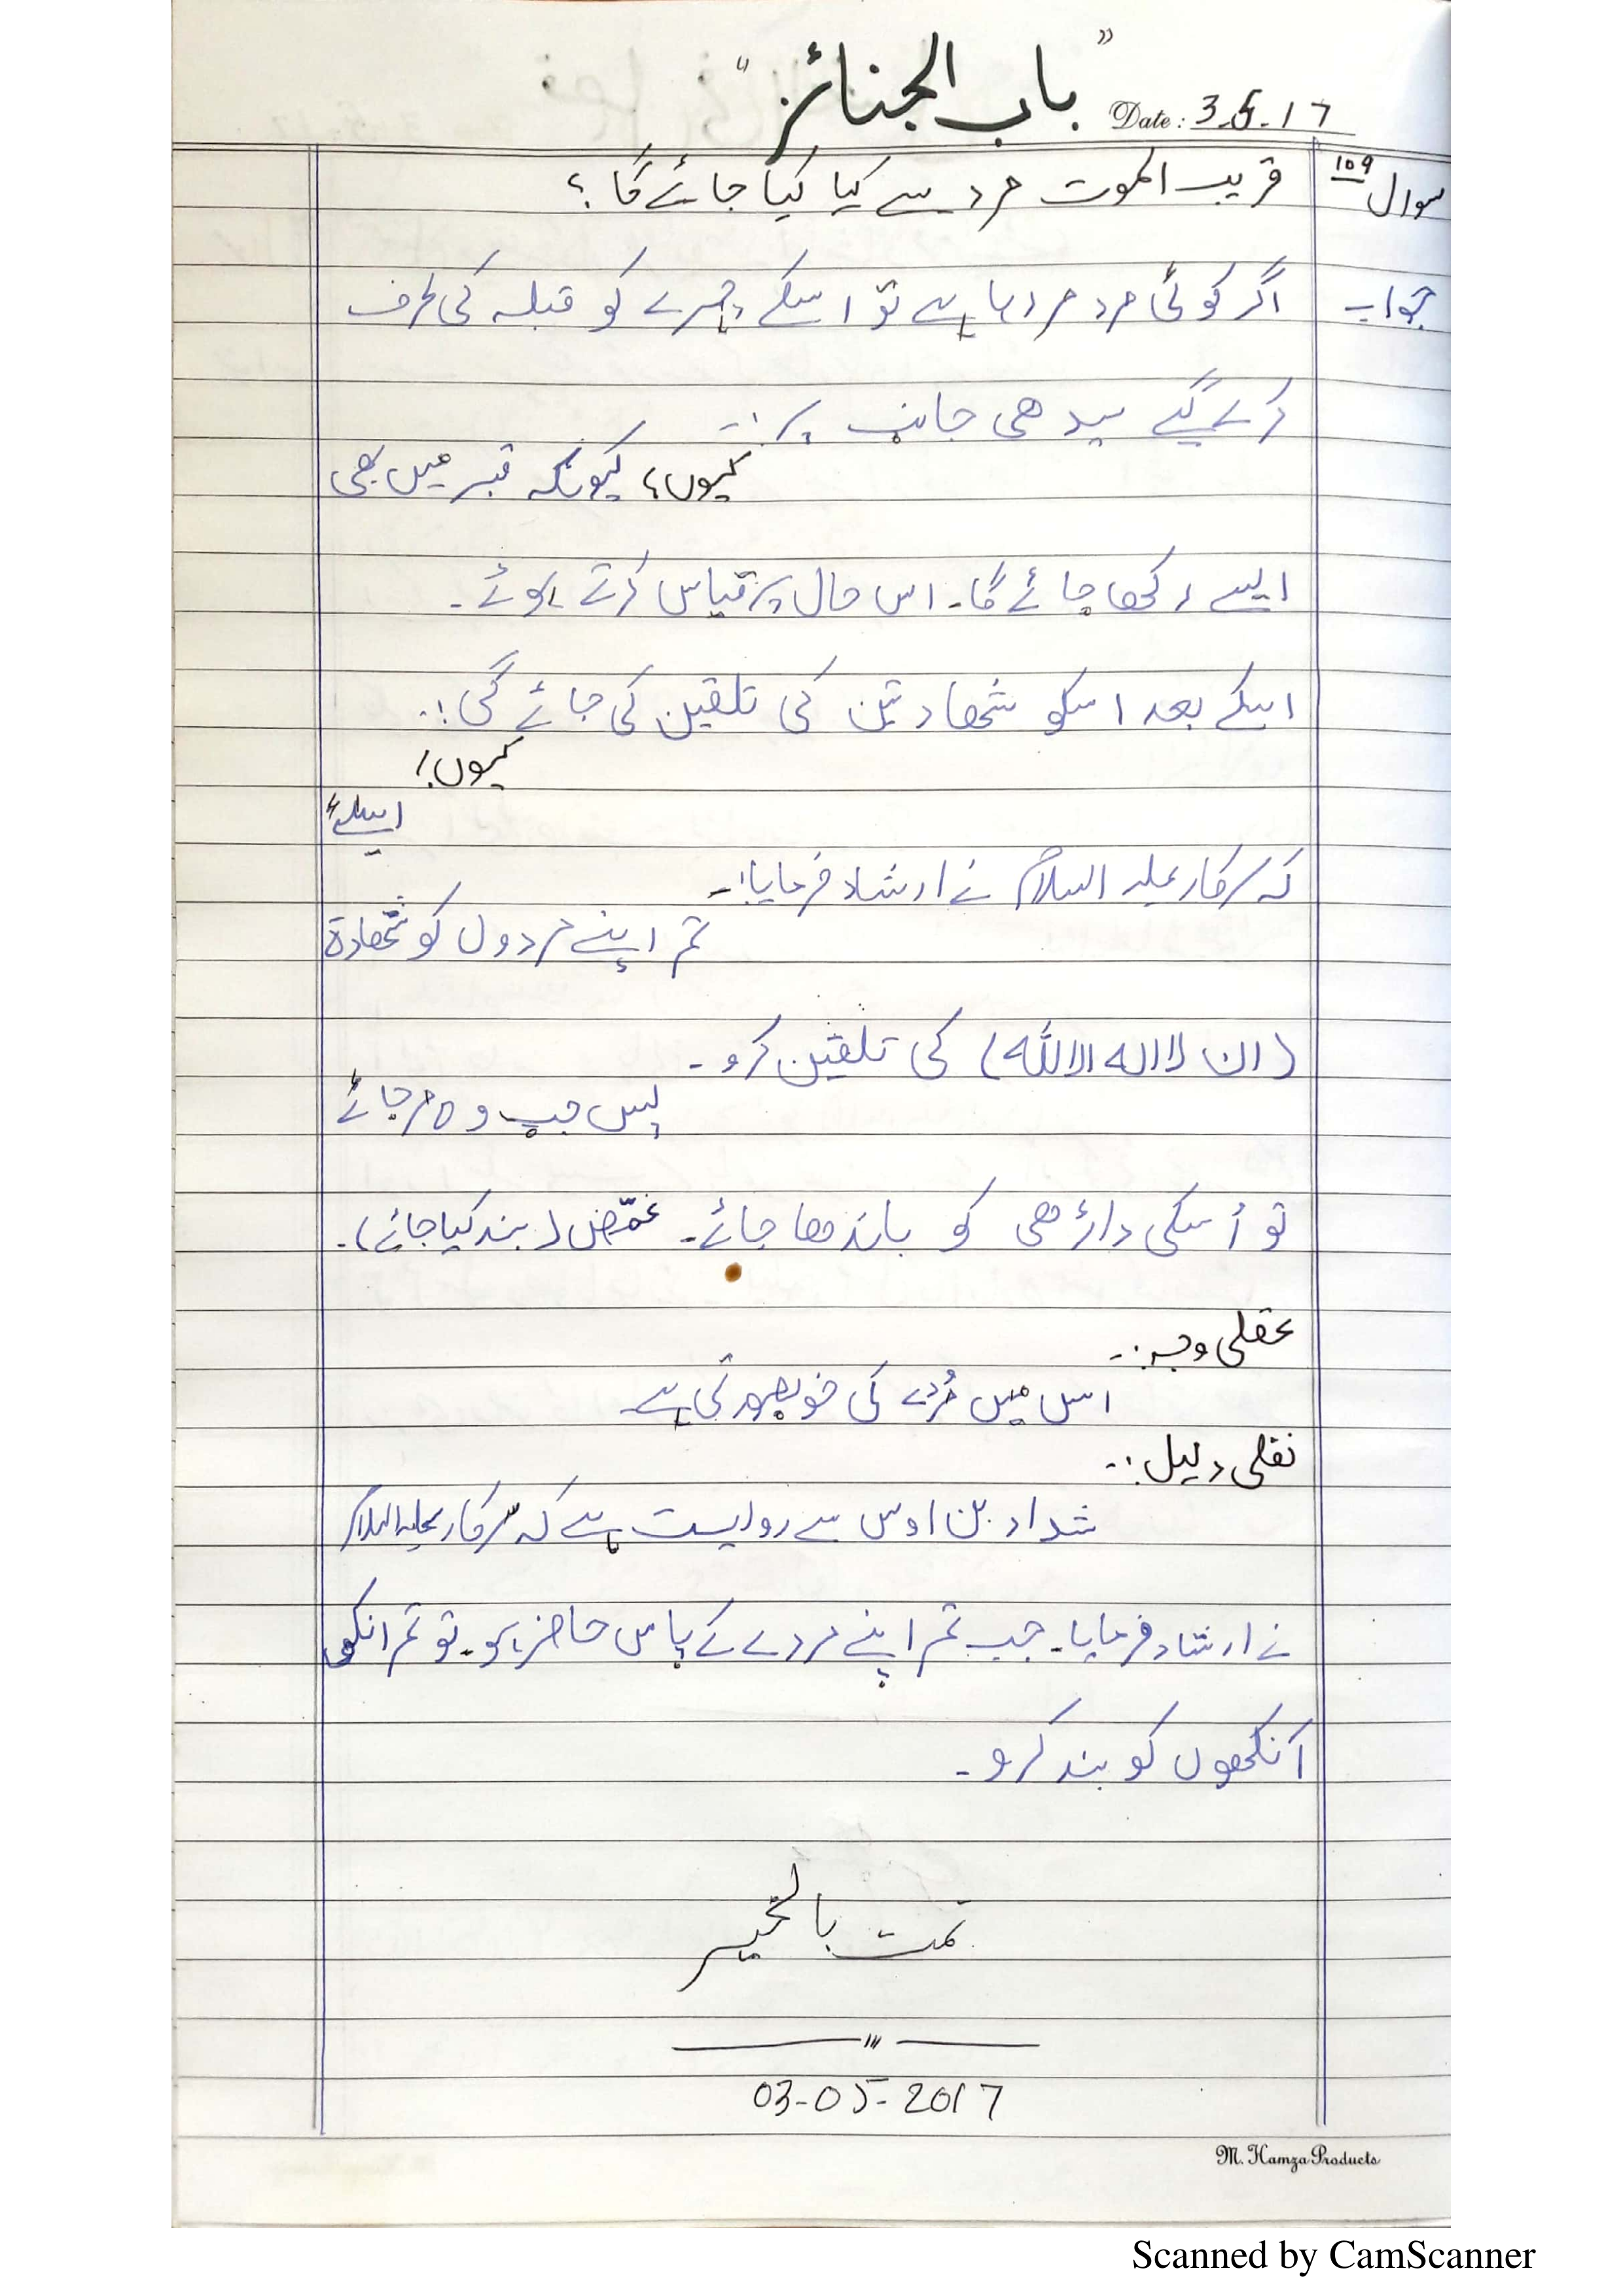 "باب الجنائز"
Date: 3.5.17
سوال 109 قریب الموت مرد سے کیا کیا جائے گا؟
جواب اگر کوئی مرد مر رہا ہے تو اسکے چہرے کو قبلہ کی طرف
کرے گیے سیدھی جانب پر:-
کیوں؟ کیونکہ قبر میں بھی
ایسے رکھا جائے گا۔ اس حال پر قیاس کرتے ہوئے۔
اسکے بعد اسکو شھادتین کی تلقین کی جائے گی:-
کیوں؟
اسلئے
کہ سرکار علیہ السلام نے ارشاد فرمایا:-
تم اپنے مردوں کو شھادۃ
(ان لا الہ الا اللہ) کی تلقین کرو۔
پس جب وہ مر جائے
تو اُسکی داڑھی کو باندھا جائے۔ غمّض (بند کیا جائے)۔
عقلی وجہ:-
اس میں مُردے کی خوبصورتی ہے۔
نقلی دلیل:-
شداد بن اوس سے روایت ہے کہ سرکار علیہ السلام
نے ارشاد فرمایا۔ جب تم اپنے مردے کے پاس حاضر ہو۔ تو تم انکی
آنکھوں کو بند کرو۔
تمت بالخیر
03-05-2017
M. Hamza Products
Scanned by CamScanner